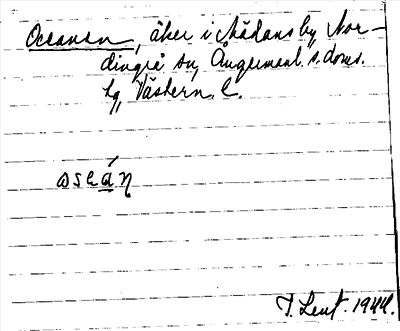 Oceanen, åker i Mädans by, Nor-
dingrå sn, Ångermanl. s. doms.
hg, Västern. l.
oseáŋ
T. Lent. 1944.